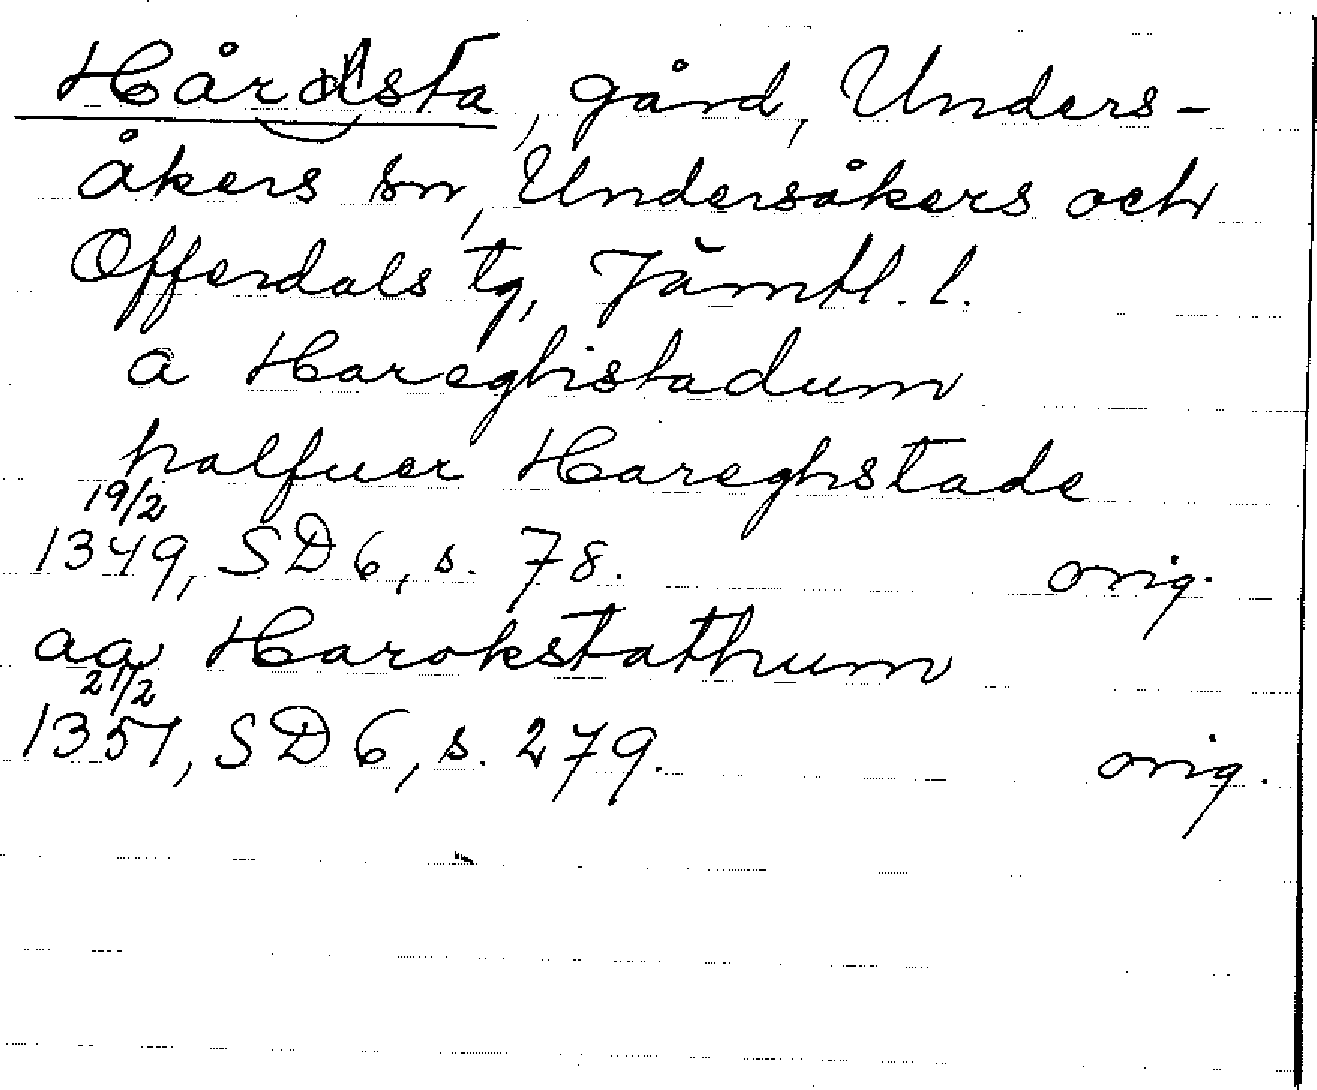 Hårdsta, gård, Unders-
åkers sn, Undersåkers och
Offerdals tg, Jämtl. l.
a Hareghistadum
halfuer Hareghstade
19/2
1349, SD 6, s. 78. orig.
aa Harokstathum
21/2
1351, SD 6, s. 279. orig.